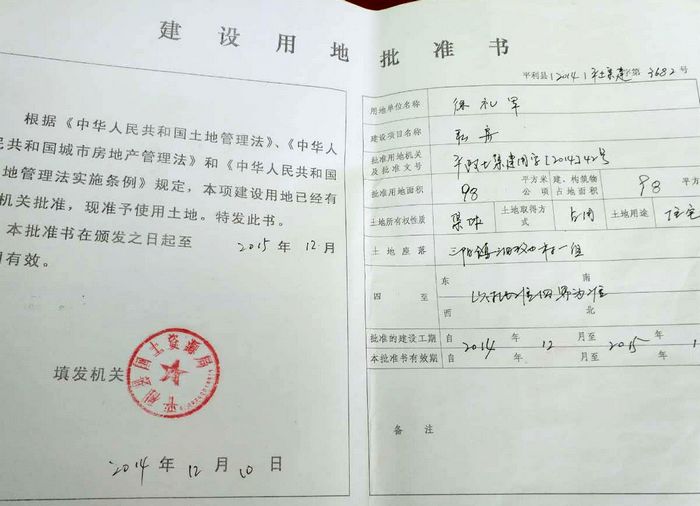 建设用地批准书
根据《中华人民共和国土地管理法》、《中华人
民共和国城市房地产管理法》和《中华人民共和国
地管理法实施条例》规定，本项建设用地已经有
机关批准，现准予使用土地。特发此书。
本批准书在颁发之日起至 2015 年 12 月
有效。
平利县国土资源局
填发机关
2014 年 12 月 10 日
平利县(2014)平土集建字第3682号
用地单位名称 徐礼军
建设项目名称
批准用地机关及批准文号 平政土集建用字[2014]42号
批准用地面积 98 平方米 公项 建、构筑物占地面积 98 平方
土地所有权性质 集体 土地取得方式 占用 土地用途 住宅
土地座落 三阳镇 村一组
四至 东 南
西 北
批准的建设工期 自 2014 年 12 月至 2015 年 1
本批准书有效期 自 年 月至 年
备注